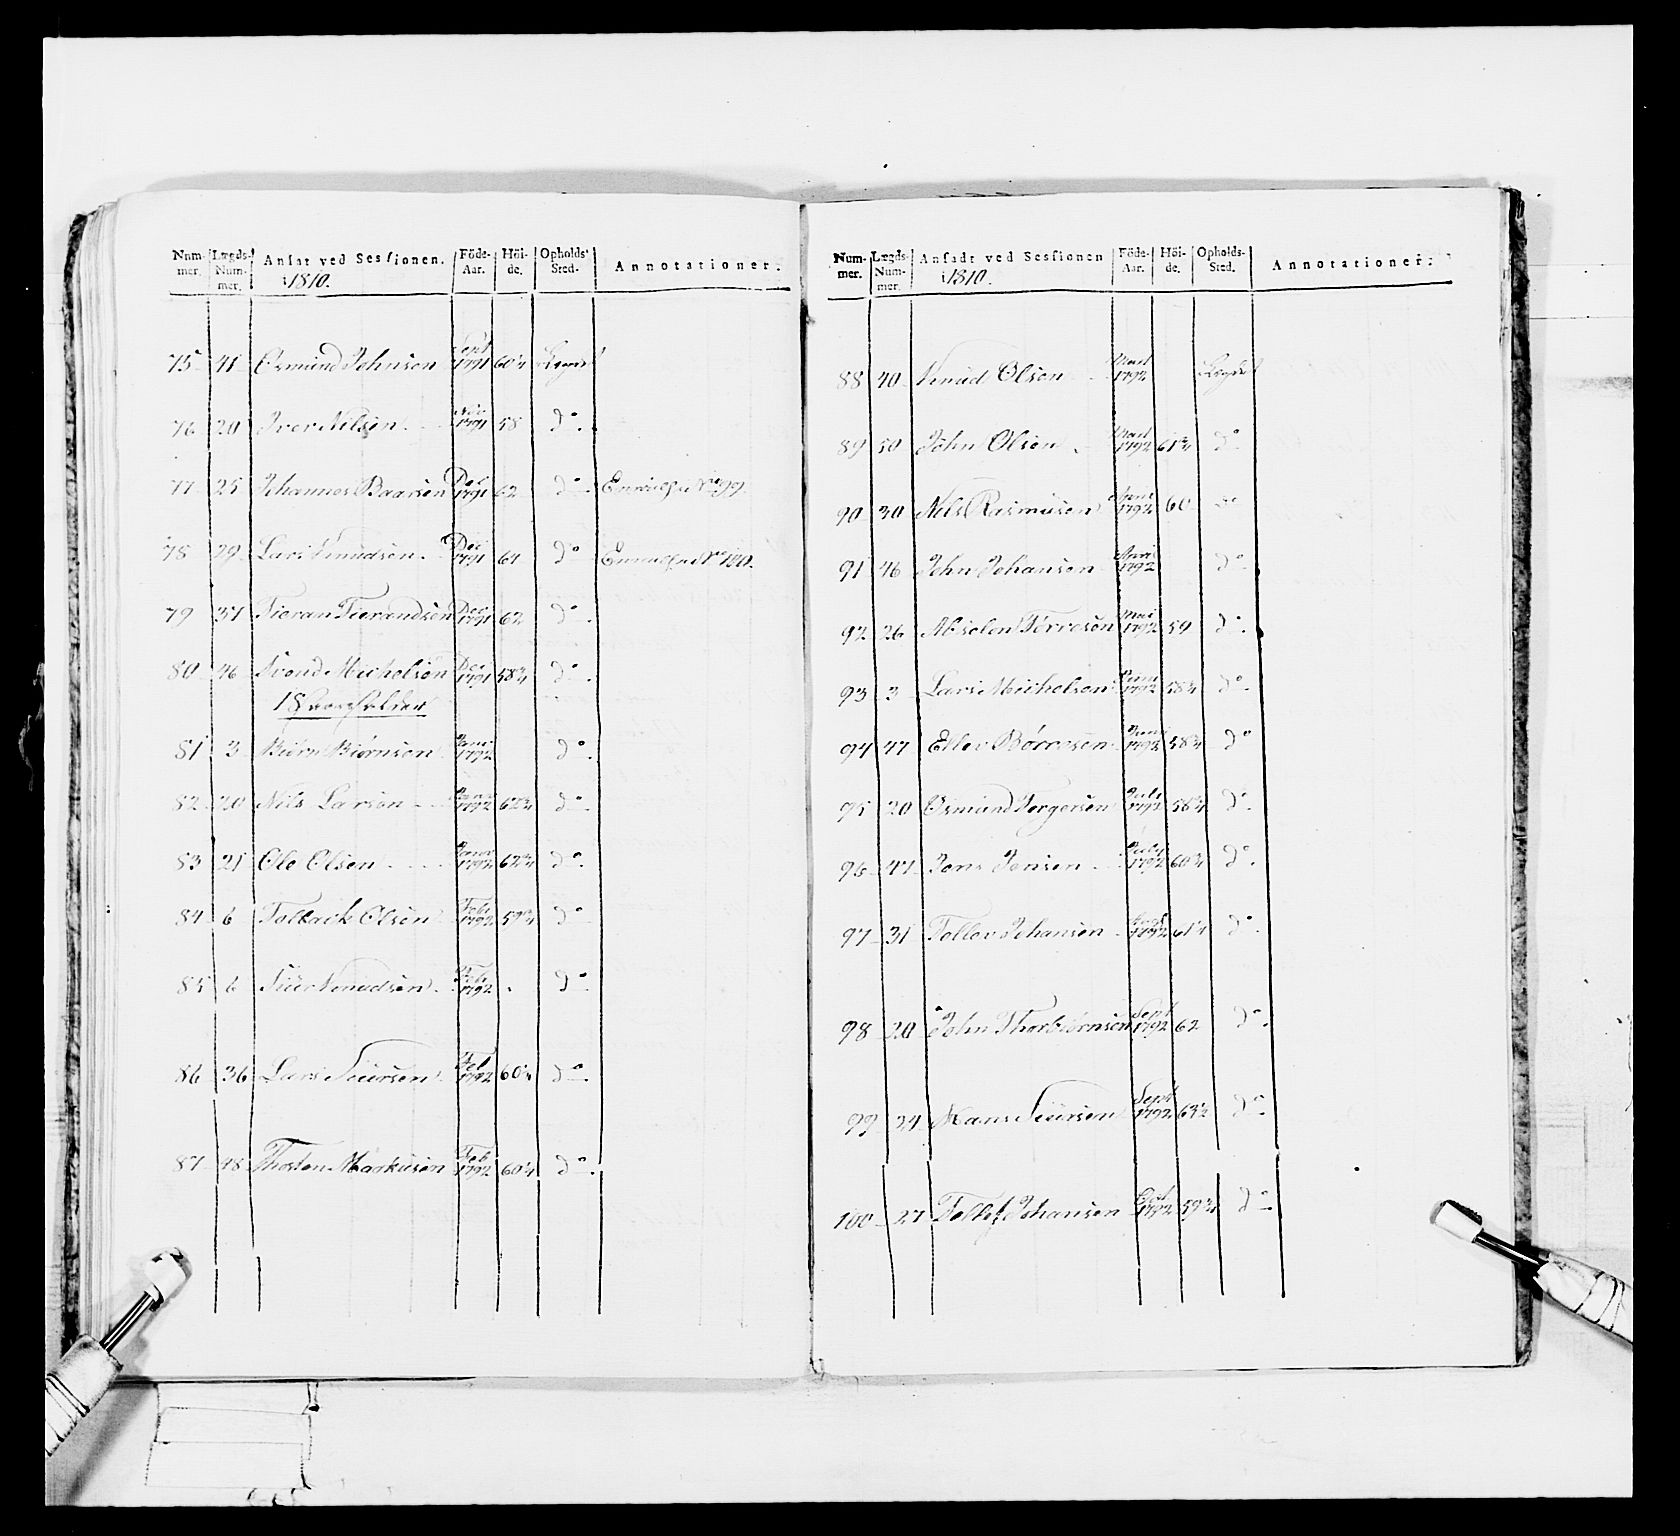 Num-mer. Lægds-Num-mer. Ansat ved Sessionen. i 1810. Föde-Aar. Höi-de. Opholds-Sted. Annotationer.
75 41 Osmund Johnsen Sept 1791 60¼ Lægdet
76 20 Iver Nilsen Nov 1791 58 do
77 25 Johannes Baarsen Dec 1791 62 do No 99.
78 29 Lars Knudsen Dec 1791 61 do No 100.
79 37 Tieran Tierandsen Dec 1791 62 do
80 46 Svend Michelsen Dec 1791 58¾ do
18
81 3 Biørn Biørnsen Janv 1792 do
82 20 Nils Larsen Janv 1792 62¾ do
83 21 Ole Olsen Janv 1792 62¾ do
84 6 Tollack Olsen Feb 1792 59¾ do
85 6 Siur Knudsen Feb 1792 do
86 36 Lars Siursen Feb 1792 60¼ do
87 48 Thosten Markusen Feb 1792 60¼ do
Num-mer. Lægds-Num-mer. Ansadt ved Sessionen i 1810. Föde-Aar. Höi-de. Opholds-Sted. Annotationer.
88 40 Knud Olsen Mart 1792 Lægdet
89 50 John Olsen Mart 1792 61¾ do
90 30 Nils Rasmusen 1792 60 do
91 46 John Johansen 1792 do
92 26 Absolon Tørresen Mai 1792 59 do
93 3 Lars Michelsen Juni 1792 58¾ do
94 47 Ellev Børresen Juni 1792 58¾ do
95 20 Osmund Torgersen Juli 1792 58¾ do
96 47 Jens Jensen July 1792 60¾ do
97 31 Tollev Johansen 1792 61¼ do
98 20 John Thorbiørnsen Sept 1792 62 do
99 24 Mans Siursen Sept 1792 63½ do
100 27 Tollef Johansen Oct 1792 59¾ do